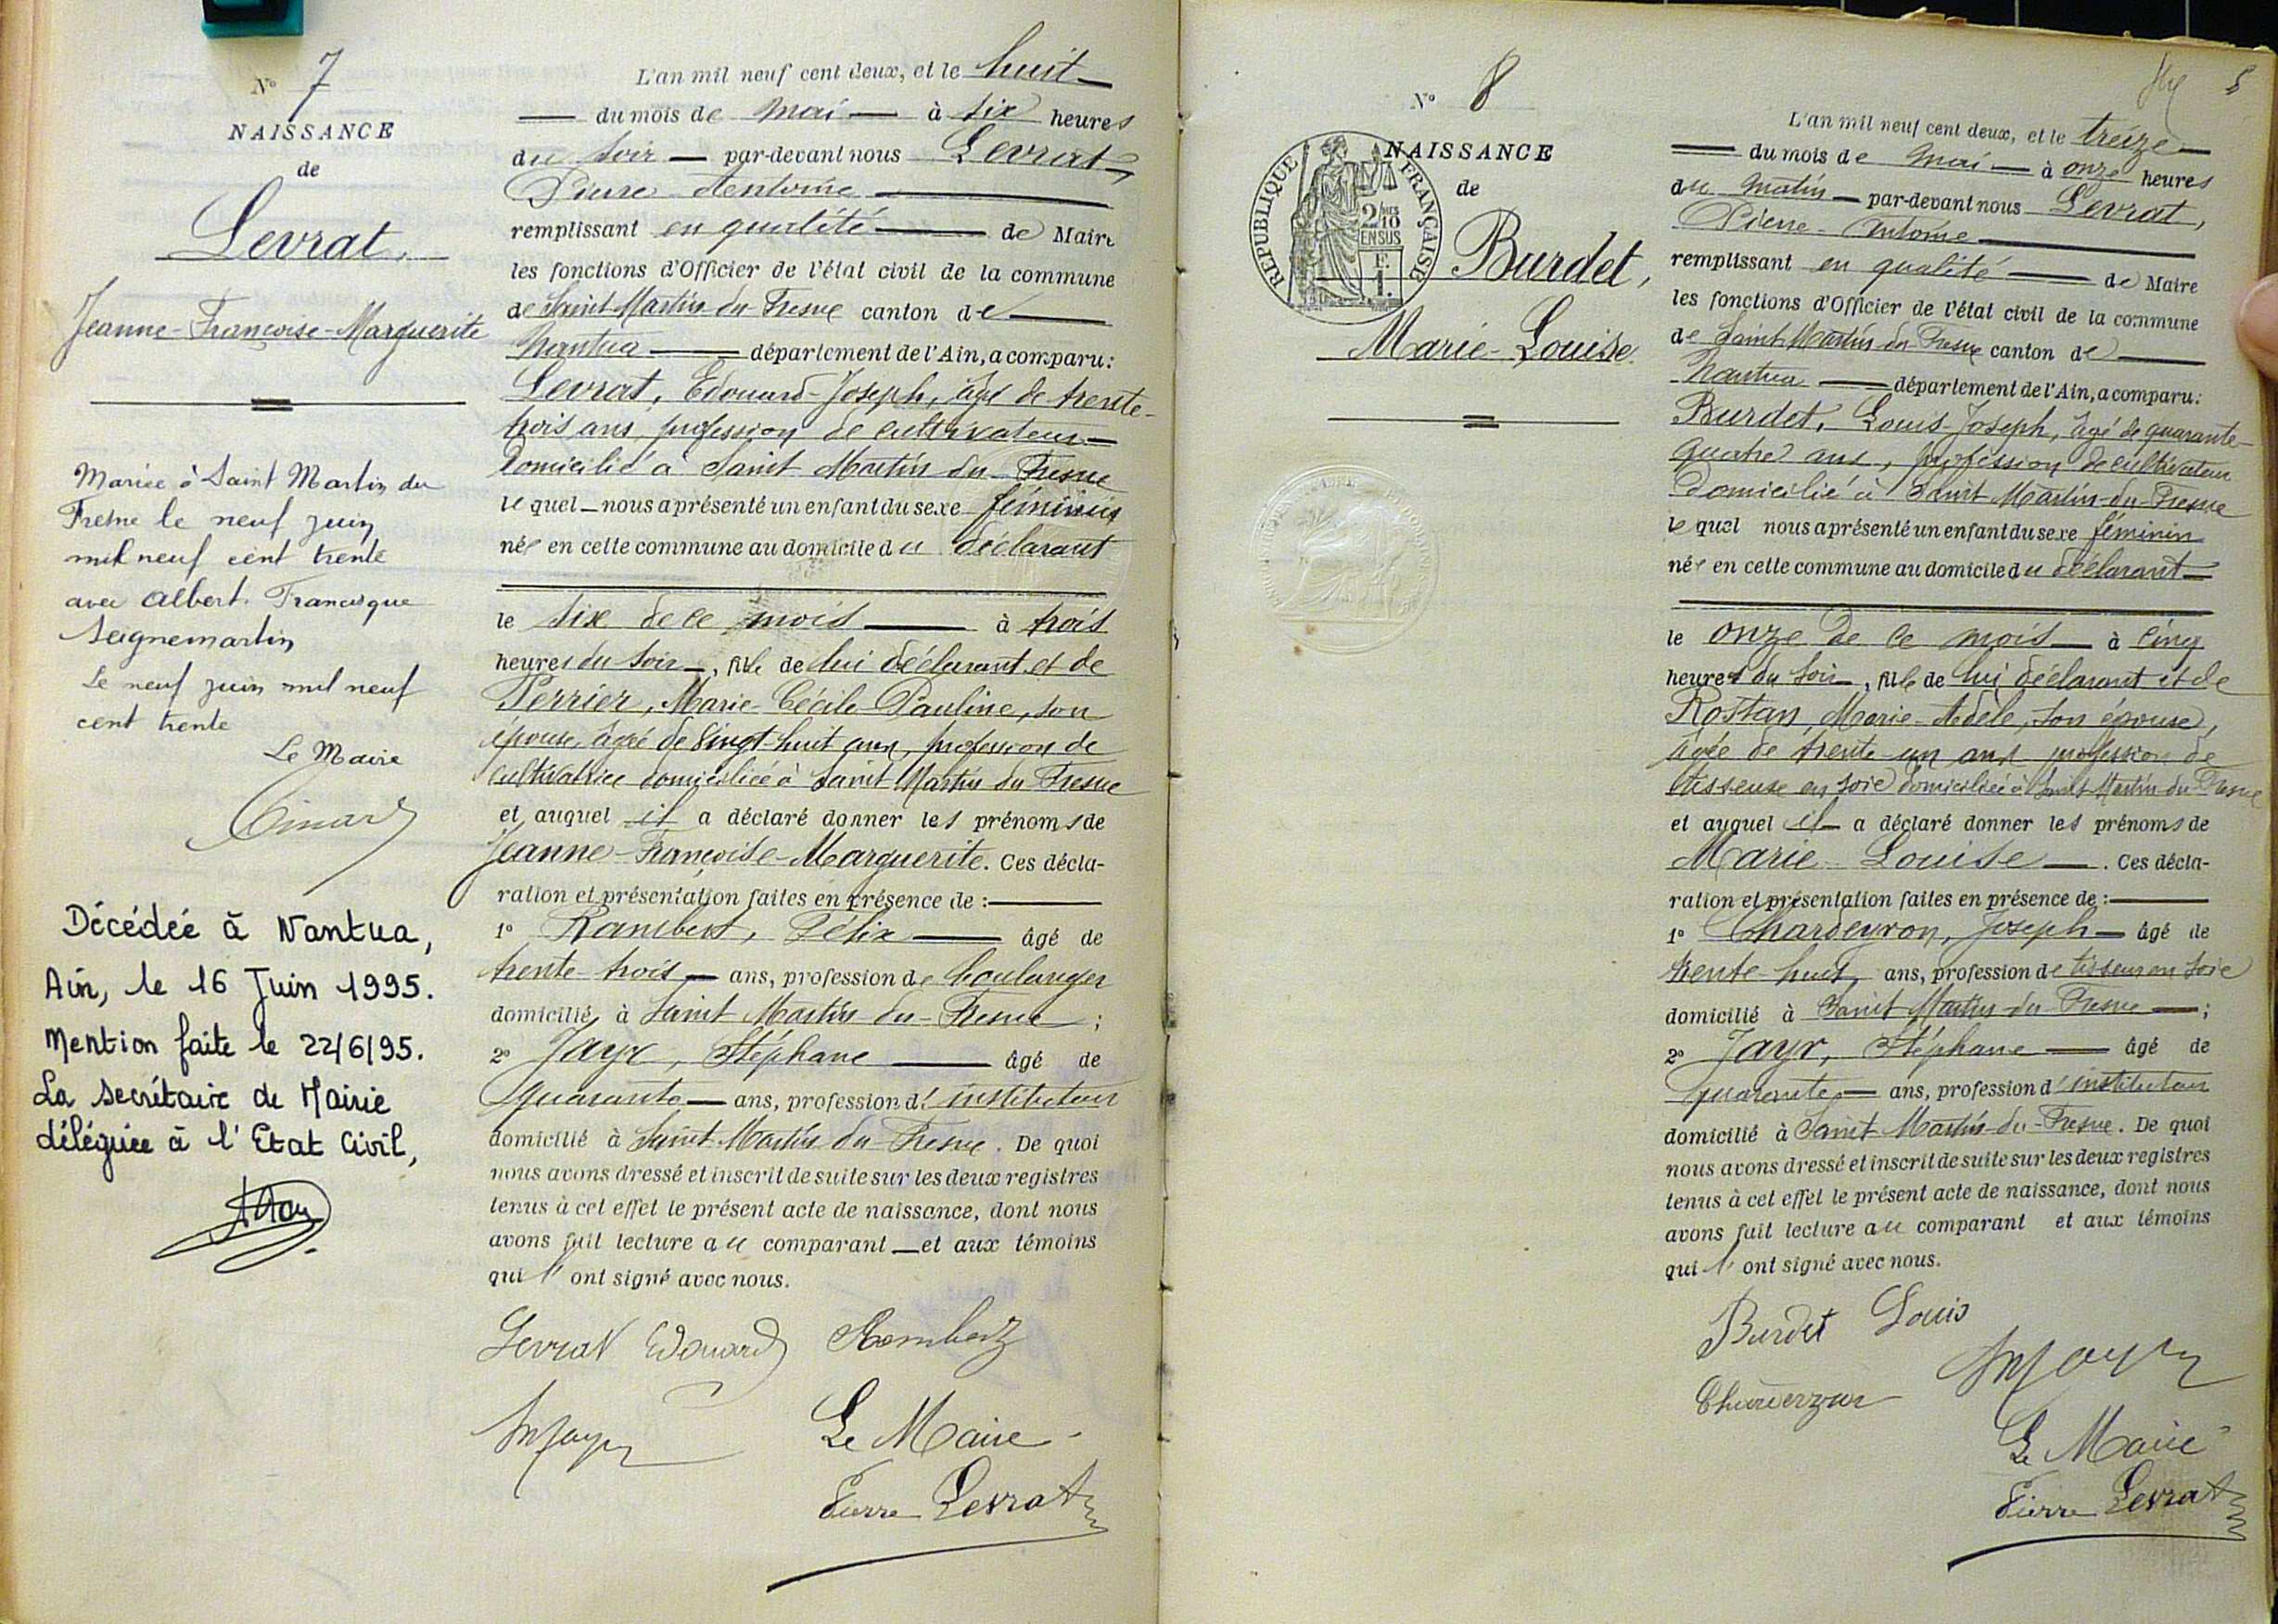 N° 7
NAISSANCE
de
Levrat,
Jeanne-Françoise-Marguerite
Mariée à Saint Martin du
Fresne le neuf juin
mil neuf cent trente
avec Albert Francisque
Seignemartin
Le neuf juin mil neuf
cent trente
Le Maire
Décédée à Nantua,
Ain, le 16 Juin 1995.
Mention faite le 22/6/95.
La secrétaire de Mairie
déléguée à l'Etat Civil,
L'an mil neuf cent deux, et le huit
du mois de mai à six heures
du soir par-devant nous Levrat,
Pierre Antoine
remplissant en qualité de Maire
les fonctions d'Officier de l'état civil de la commune
de Saint-Martin-du-Fresne canton de
Nantua département de l'Ain, a comparu:
Levrat, Edouard-Joseph, âgé de trente-
trois ans, profession de cultivateur
domicilié à Saint Martin-du-Fresne
le quel nous a présenté un enfant du sexe féminin
née en cette commune au domicile du déclarant
le six de ce mois à trois
heures du soir, fille de lui déclarant et de
Perrier, Marie-Cécile-Pauline, son
épouse, âgée de vingt-huit ans, profession de
cultivatrice domiciliée à Saint Martin du Fresne
et auquel il a déclaré donner les prénoms de
Jeanne-Françoise-Marguerite. Ces décla-
ration et présentation faites en présence de :
1° Rambert, Félix âgé de
trente-trois ans, profession de boulanger
domicilié à Saint Martin-du-Fresne ;
2° Jayr, Stéphane âgé de
quarante ans, profession d'instituteur
domicilié à Saint-Martin-du-Fresne. De quoi
nous avons dressé et inscrit de suite sur les deux registres
tenus à cet effet le présent acte de naissance, dont nous
avons fait lecture au comparant et aux témoins
qui l'ont signé avec nous.
Levrat Edouard Rambert
Le Maire
Pierre Levrat
5
N° 8
NAISSANCE
de
REPUBLIQUE FRANÇAISE
2/10
EN SUS
F.
1.
Burdet,
Marie-Louise.
L'an mil neuf cent deux, et le treize
du mois de mai à onze heures
du matin par-devant nous Levrat,
Pierre-Antoine
remplissant en qualité de Maire
les fonctions d'Officier de l'état civil de la commune
de Saint-Martin-du-Fresne canton de
Nantua département de l'Ain, a comparu:
Burdet, Louis-Joseph, âgé de quarante-
quatre ans, profession de cultivateur
domicilié à Saint-Martin-du-Fresne
le quel nous a présenté un enfant du sexe féminin
née en cette commune au domicile du déclarant
le onze de ce mois à cinq
heures du soir, fille de lui déclarant et de
Rostan, Marie-Adèle, son épouse,
âgée de trente-un ans profession de
tisseuse en soie domiciliée à Saint-Martin-du-Fresne
et auquel il a déclaré donner les prénoms de
Marie Louise. Ces décla-
ration et présentation faites en présence de :
1° Chardeyron, Joseph âgé de
trente-huit ans, profession de tisseur en soie
domicilié à Saint Martin-du-Fresne ;
2° Jayr, Stéphane âgé de
quarante ans, profession d'instituteur
domicilié à Saint Martin-du-Fresne. De quoi
nous avons dressé et inscrit de suite sur les deux registres
tenus à cet effet le présent acte de naissance, dont nous
avons fait lecture au comparant et aux témoins
qui l'ont signé avec nous.
Burdet Louis
Le Maire
Pierre Levrat